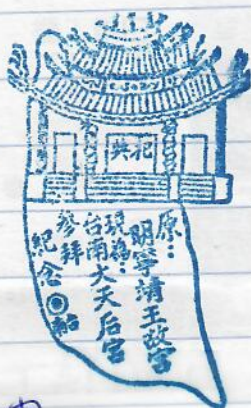 原：
明寧靖王故宮
現為：
台南大天后宮
參拜
紀念